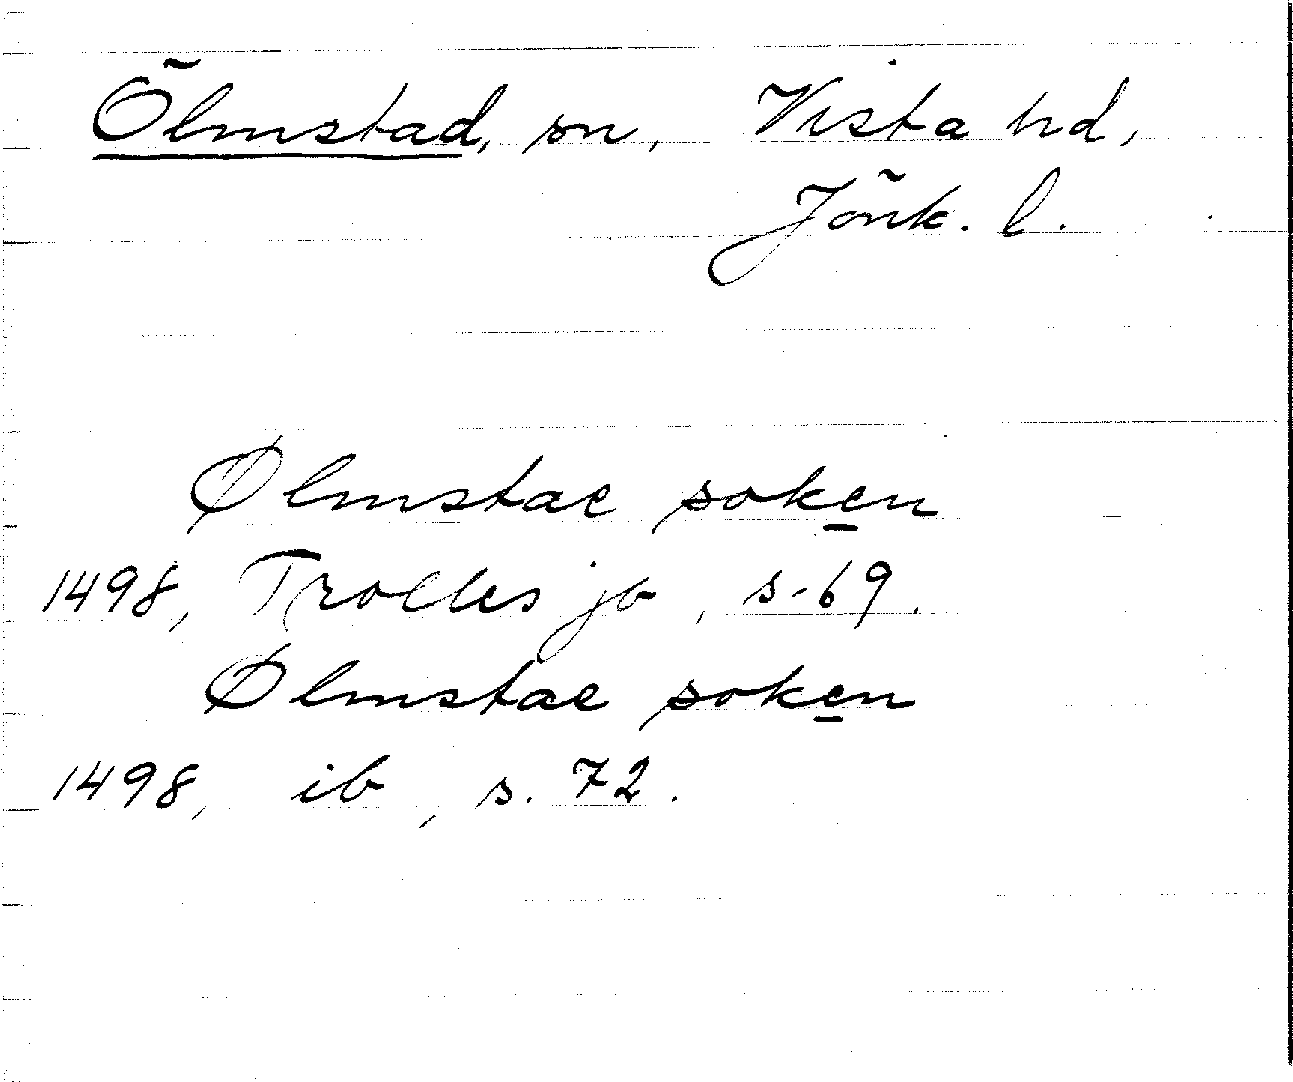 Ölmstad, sn, Vista hd,
Jönk. l.
Ølmstae soken
1498, Trolles jb, s. 69.
Ølmstae soken
1498, ib, s. 72.